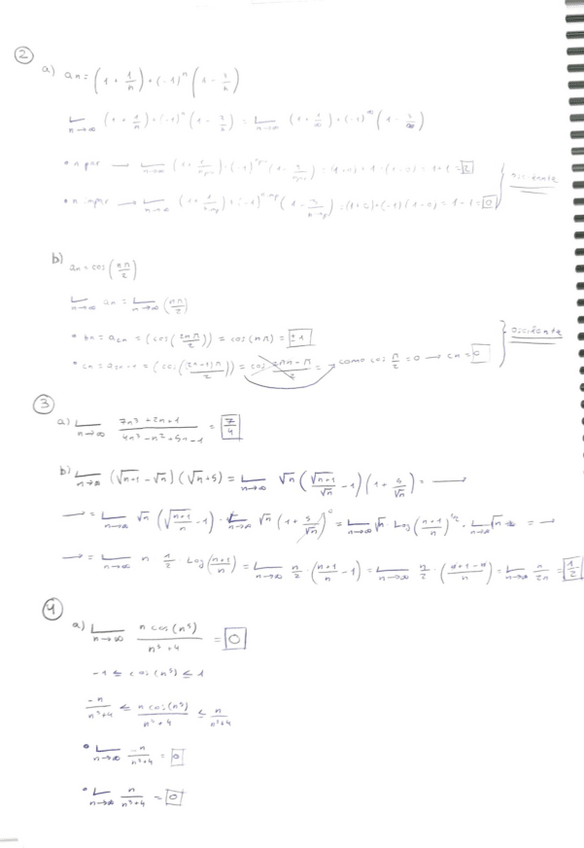 ②
a) an = (1 + 1/n) + (-1)^n (1 - 3/n)
lim n→∞ (1 + 1/n) + (-1)^n (1 - 3/n) = lim n→∞ (1 + 1/∞) + (-1)^∞ (1 - 3/∞)
• n par → lim n→∞ = (1+0) + 1·(1-0) = 1+1 = 2
• n impar → lim n→∞ = (1+0) + (-1)(1-0) = 1-1 = 0
oscilante
b)
an = cos (nπ/2)
lim n→∞ an = lim n→∞ (nπ/2)
• bn = a2n = (cos (2nπ/2)) = cos (nπ) = ±1
• cn = a2n-1 = (cos ((2n-1)π/2)) = como cos π/2 = 0 → cn = 0
oscilante
③
a) lim n→∞ (7n³ + 2n + 1)/(4n³ - n² + 5n - 1) = 7/4
b) lim n→∞ (√n+1 - √n) (√n + 5) = lim n→∞ √n (√n+1/√n - 1) (1 + 5/√n) = →
→ = lim n→∞ √n (√n+1/n - 1) · lim n→∞ √n (1 + 5/√n)⁰ = lim n→∞ √n · Log ((n+1)/n)^1/2 · lim n→∞ √n = →
→ = lim n→∞ n 1/2 · Log ((n+1)/n) = lim n→∞ n/2 · ((n+1)/n - 1) = lim n→∞ n/2 · ((n+1-n)/n) = lim n→∞ n/2n = 1/2
④
a) lim n→∞ (n cos (n⁵))/(n³ + 4) = 0
-1 ≤ cos (n⁵) ≤ 1
-n/(n³+4) ≤ (n cos (n⁵))/(n³ + 4) ≤ n/(n³+4)
• lim n→∞ -n/(n³+4) = 0
• lim n→∞ n/(n³+4) = 0